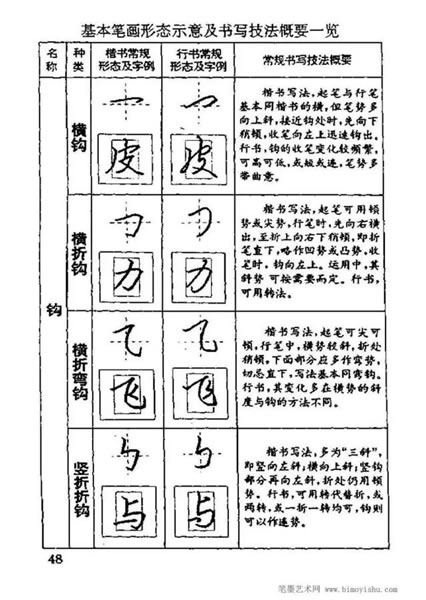 基本笔画形态示意及书写技法概要一览
名称
种类
楷书常规
形态及字例
行书常规
形态及字例
常规书写技法概要
钩
横钩
皮
皮
楷书写法，起笔与行笔
基本同楷书的横，但笔势多
向上斜，接近钩处时，先向下
稍顿，收笔向左上迅速钩出。
行书，钩的收笔变化较频繁，
可高可低，或短或连，笔势多
带曲意。
横折钩
力
力
楷书写法，起笔可用顿
势或尖势，行笔时，先向右横
出，至折上向右下稍顿，即折
笔直下，略作凹势或凸势，收
笔时，钩向左上。运用中，其
斜势可按需要而定。行书，
可用转法。
横折弯钩
飞
飞
楷书写法，起笔可尖可
顿，行笔中，横势较斜，折处
稍顿，下面部分应多作弯势，
切忌直下，写法基本同弯钩。
行书，其变化多在横势的斜
度与钩的方法不同。
竖折折钩
与
与
楷书写法，多为“三斜”，
即竖向左斜；横向上斜；竖钩
部分再向左斜，折处仍用顿
势。行书，可用转代替折，或
两转，或一折一转均可，钩则
可以作连势。
48
笔墨艺术网 www.bimoyishu.com